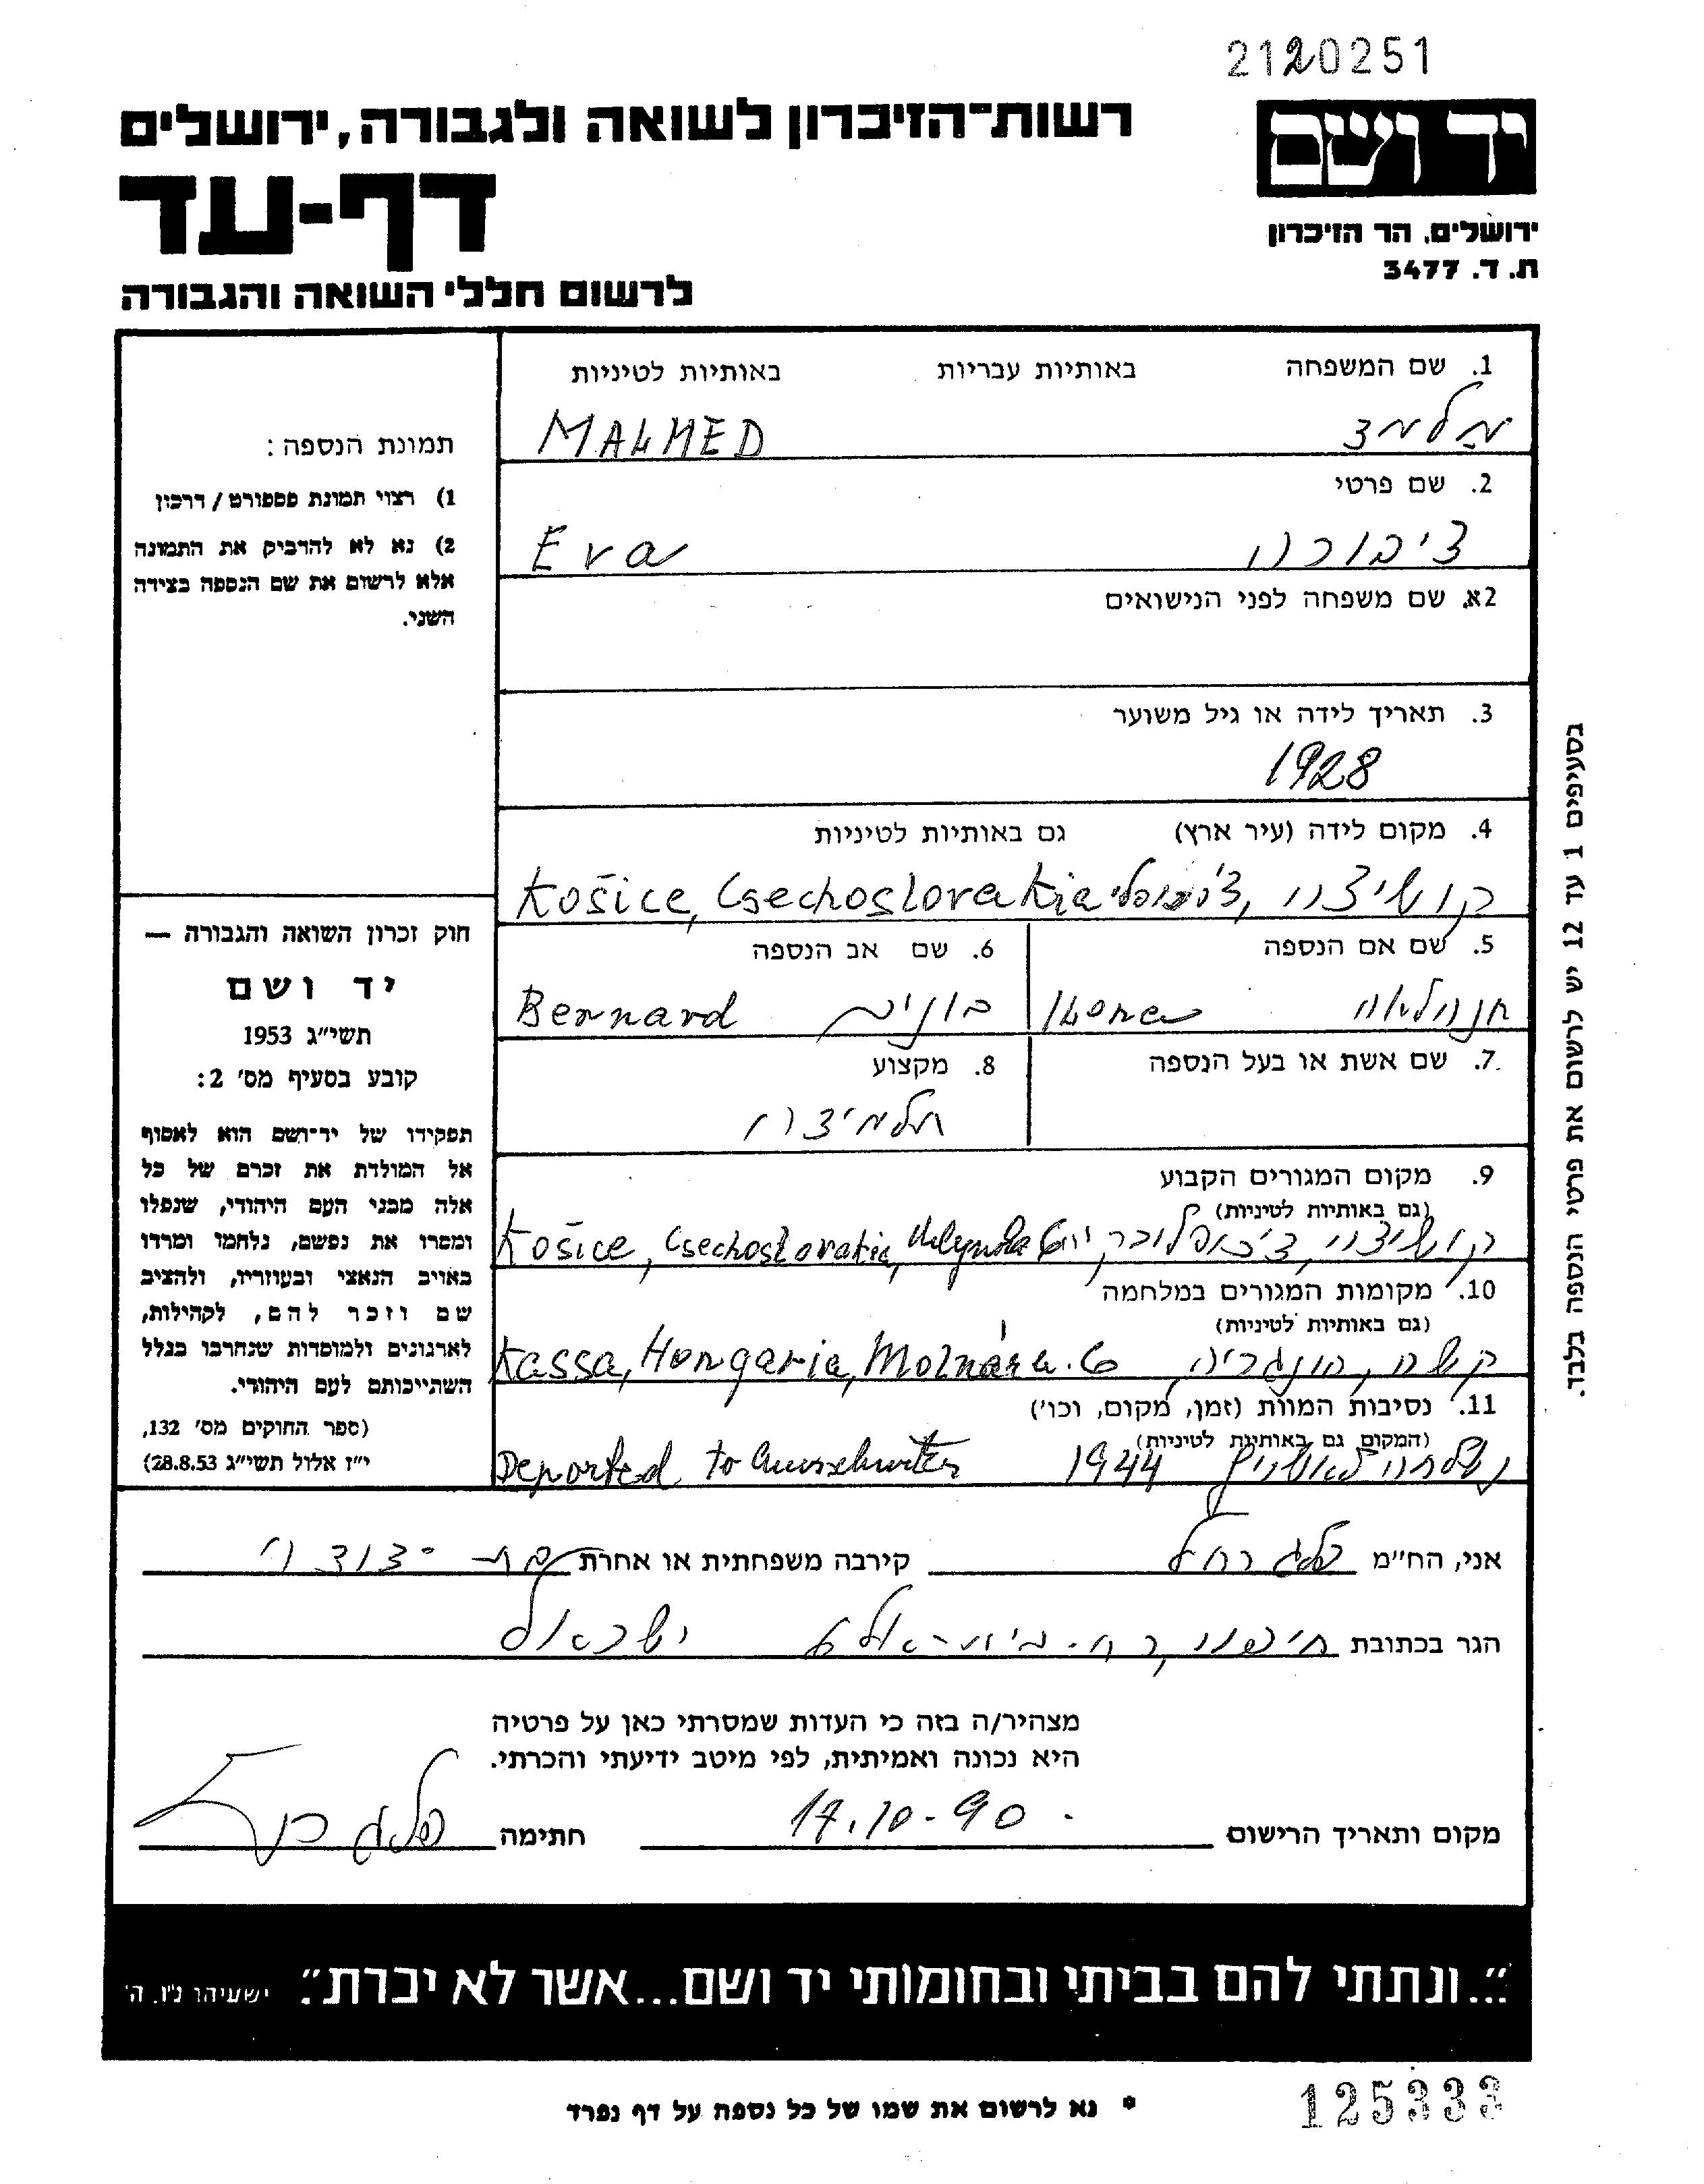 2120251
יד ושם
ירושלים, הר הזיכרון
ת. ד. 3477
רשות-הזיכרון לשואה ולגבורה, ירושלים
דף-עד
לרשום חללי השואה והגבורה
1. שם המשפחה באותיות עבריות באותיות לטיניות
מלמד MALMED
2. שם פרטי
ציפורה Eva
2א. שם משפחה לפני הנישואים
3. תאריך לידה או גיל משוער
1928
4. מקום לידה (עיר ארץ) גם באותיות לטיניות
קושיצה, Košice, Csechoslovakia
5. שם אם הנספה 6. שם אב הנספה
Ilona Bernard
7. שם אשת או בעל הנספה 8. מקצוע
תלמידה
9. מקום המגורים הקבוע
(גם באותיות לטיניות)
קושיצה, Košice, Csechoslovakia,
10. מקומות המגורים במלחמה
(גם באותיות לטיניות)
קשה, הונגריה, Kassa, Hongaria, Molnár u. 6
11. נסיבות המוות (זמן, מקום, וכו')
(המקום גם באותיות לטיניות)
נשלחה לאושויץ 1944 Deported to
אני, הח"מ פלג רחל קירבה משפחתית או אחרת בת-דודה
הגר בכתובת חיפה, רח. ישראל
מצהיר/ה בזה כי העדות שמסרתי כאן על פרטיה
היא נכונה ואמיתית, לפי מיטב ידיעתי והכרתי.
מקום ותאריך הרישום 17.10-90 חתימה פלג רחל
תמונת הנספה:
1) רצוי תמונת פספורט / דרכון
2) נא לא להדביק את התמונה
אלא לרשום את שם הנספה בצידה
השני.
חוק זכרון השואה והגבורה —
יד ושם
תשי"ג 1953
קובע בסעיף מס' 2:
תפקידו של יד-ושם הוא לאסוף
אל המולדת את זכרם של כל
אלה מבני העם היהודי, שנפלו
ומסרו את נפשם, נלחמו ומרדו
באויב הנאצי ובעוזריו, ולהציב
שם וזכר להם, לקהילות,
לארגונים ולמוסדות שנחרבו בגלל
השתייכותם לעם היהודי.
(ספר החוקים מס' 132,
י"ז אלול תשי"ג 28.8.53)
בסעיפים 1 עד 12 יש לרשום את פרטי הנספה בלבד.
"...ונתתי להם בביתי ובחומותי יד ושם...אשר לא יכרת". ישעיהו נ"ו, ה'
* נא לרשום את שמו של כל נספה על דף נפרד
125333